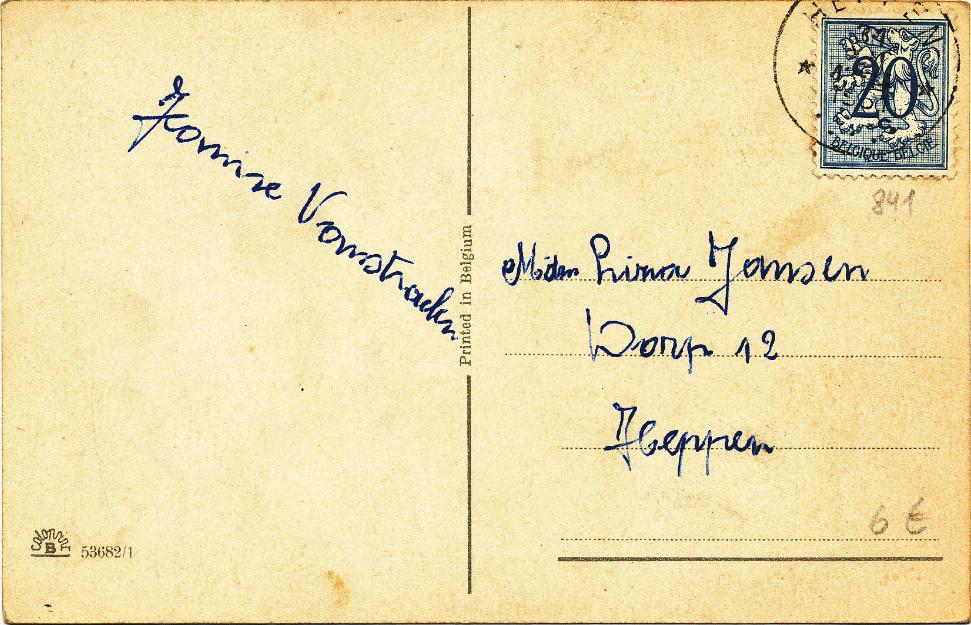 Vanstraelen
Printed in Belgium
colorprint
B
53682/1
HEPPEN
20
c
BELGIQUE-BELGIË
841
Jansen
Dorp 12
Heppen
6 €